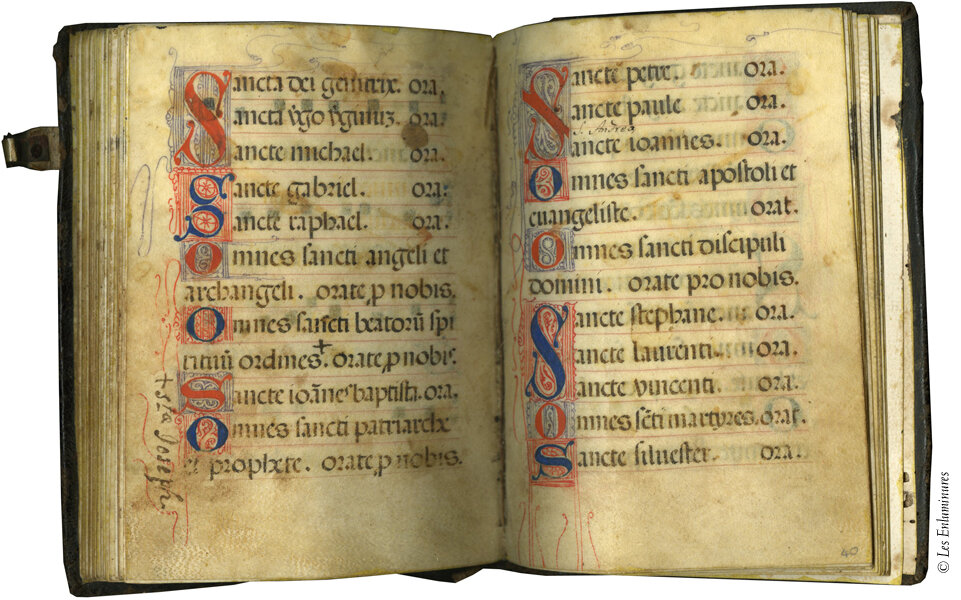 Sancta dei genitrix. ora.
Sancta v̄go v̄ginū3. ora.
Sancte michael. ora.
Sancte gabriel. ora.
Sancte raphael. ora.
Omnes sancti angeli et
archangeli. orate ꝓ nobis.
Omnes sancti beatorū spi
rituū ordines. + orate ꝓ nobis.
Sancte ioānes baptista. ora.
Omnes sancti patriarche
et prophete. orate ꝓ nobis.
+ Joseph
Sancte petre. ora.
Sancte paule ora.
S. Andrea
Sancte ioannes. ora.
Omnes sancti apostoli et
euangeliste. orat.
Omnes sancti discipuli
domini. orate pro nobis.
Sancte stephane. ora.
Sancte laurenti. ora.
Sancte vincenti. ora.
Omnes scti martyres. orat.
Sancte siluester. ora.
40
© Les Enluminures